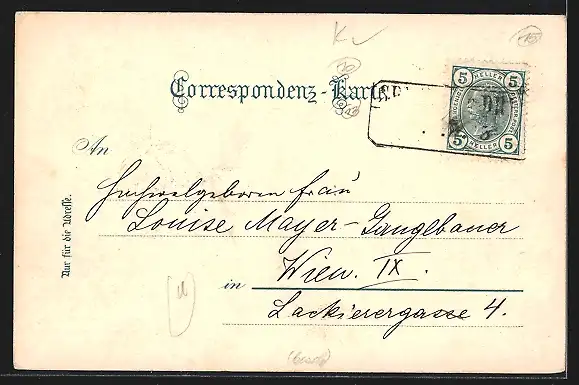 Correspondenz-Karte
5 HELLER 5
5 HELLER 5
An
Hochwolgeboren Frau
Louise Mayer-Ganglbauer
in Wien. IX.
Lackierergasse 4.
Nur für die Adresse.